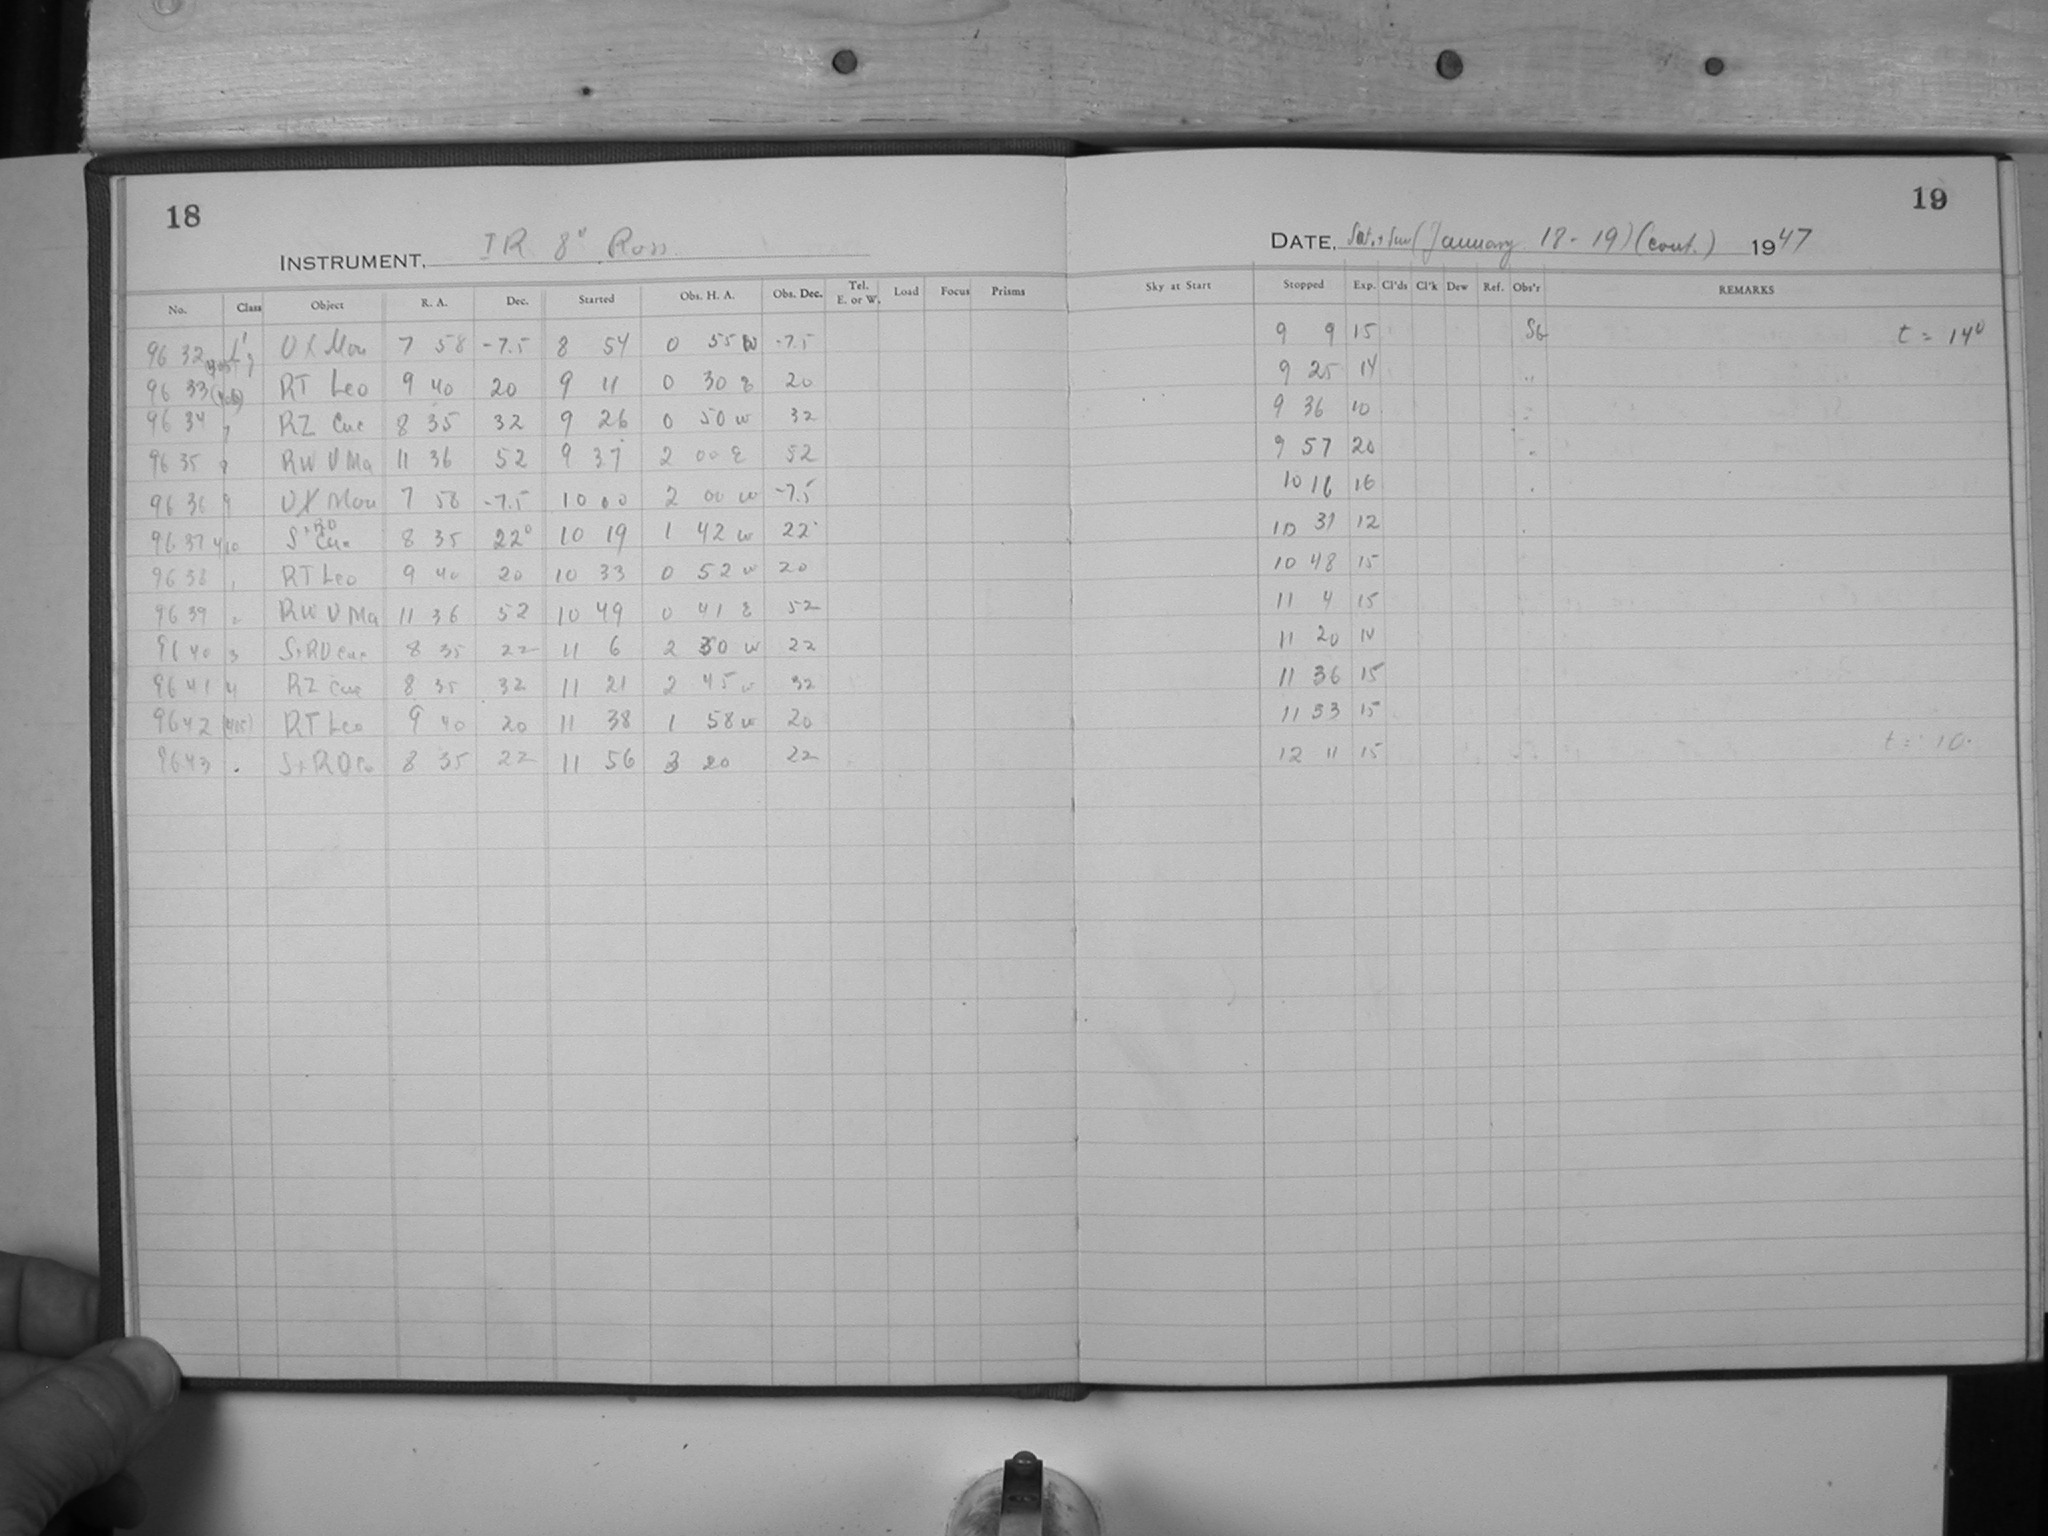 18
19
INSTRUMENT, IR 8" Ross
DATE, Sat. + Sun (January 18 - 19) (cont.) 1947
No. Class Object R. A. Dec. Started Obs. H. A. Obs. Dec. Tel. E. or W. Load Focus Prisms Sky at Start Stopped Exp. Cl'ds Cl'k Dew Ref. Obs'r REMARKS
96 32 UX Mon 7 58 -7.5 8 54 0 55 W -7.5 9 9 15 SG t = 14°
96 33 RT Leo 9 40 20 9 11 0 30 E 20 9 25 14 "
96 34 RZ Cnc 8 35 32 9 26 0 50 w 32 9 36 10
96 35 RW U Ma 11 36 52 9 37 2 00 E 52 9 57 20
96 36 UX Mon 7 58 -7.5 10 00 2 00 w -7.5 10 16 16
96 37 S+RU Cnc 8 35 22° 10 19 1 42 w 22° 10 31 12
96 38 RT Leo 9 40 20 10 33 0 52 w 20 10 48 15
96 39 RW U Ma 11 36 52 10 49 0 41 E 52 11 4 15
96 40 S+RU Cnc 8 35 22 11 6 2 30 w 22 11 20 14
96 41 RZ Cnc 8 35 32 11 21 2 45 w 32 11 36 15
96 42 RT Leo 9 40 20 11 38 1 58 w 20 11 53 15
96 43 8 35 22 11 56 3 20 22 12 11 15 t = 10